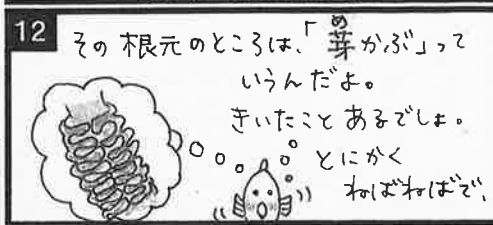 12
その根元のところは、「芽かぶ」って
め
いうんだよ。
きいたことあるでしょ。
とにかく
ねばねばで、